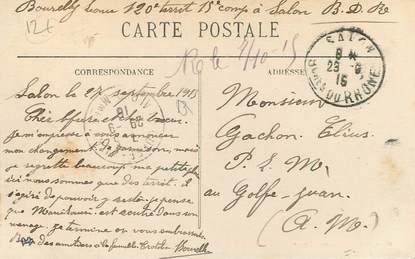 Bourelly Léonce 120e territ 15e comp à Salon B. D. R
12f
CARTE POSTALE
Re le 2/10-15
CORRESPONDANCE
ADRESSE
SALON
29 -9
15
BCHES DU RHONE
Salon le 28 septembre 1915
Cher et chère
je m'empresse à vous annoncer
mon changement de garnison, mais
je regrette beaucoup une petite
ici nous sommes que des territ. il
s'agira de pouvoir y rester. je pense
que est rentré dans son
menage. je termine en vous embrassant
Bien des amitiers à la famille Bourelly
Monsieur
Gachon Élius
P. L. M.
au Golfe-Juan
(A. M.)